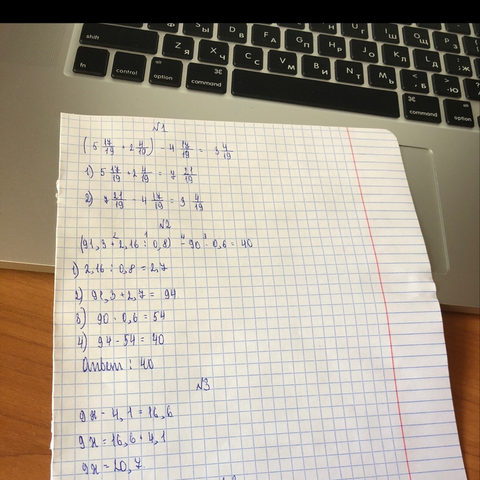 shift
fn
control
option
⌘
command
Z Я
X Ч
C С
V М
B И
N Т
M Ь
⌘
command
option
S Ы
D В
F А
G П
H Р
J О
K Л
L Д
№1
(5 17/19 + 2 4/19) - 4 17/19 = 3 4/19
1) 5 17/19 + 2 4/19 = 7 21/19
2) 7 21/19 - 4 17/19 = 3 4/19
№2
(91,3 + 2,16 : 0,8) - 90 · 0,6 = 40
1) 2,16 : 0,8 = 2,7
2) 91,3 + 2,7 = 94
3) 90 · 0,6 = 54
4) 94 - 54 = 40
Ответ : 40
№3
9х - 4,1 = 16,6
9х = 16,6 + 4,1
9х = 20,7